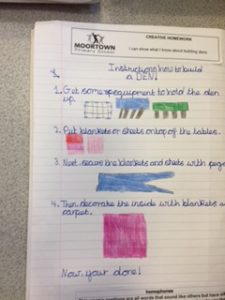 MOORTOWN
Primary School
CREATIVE HOMEWORK
I can show what I know about building dens.
Instructions how to build
a DEN!
1. Get some equipment to hold the den
up.
2. Put blankets or sheets on top of the tables.
3. Next secure the blankets and sheets with pegs
4. Then decorate the inside with blankets a
carpet.
Now your done!
homophones